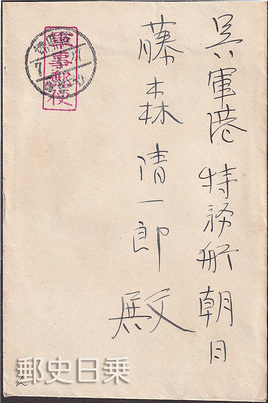 呉軍港 特務艦 朝日
藤森清一郎 殿
軍事郵便
郵史日乗